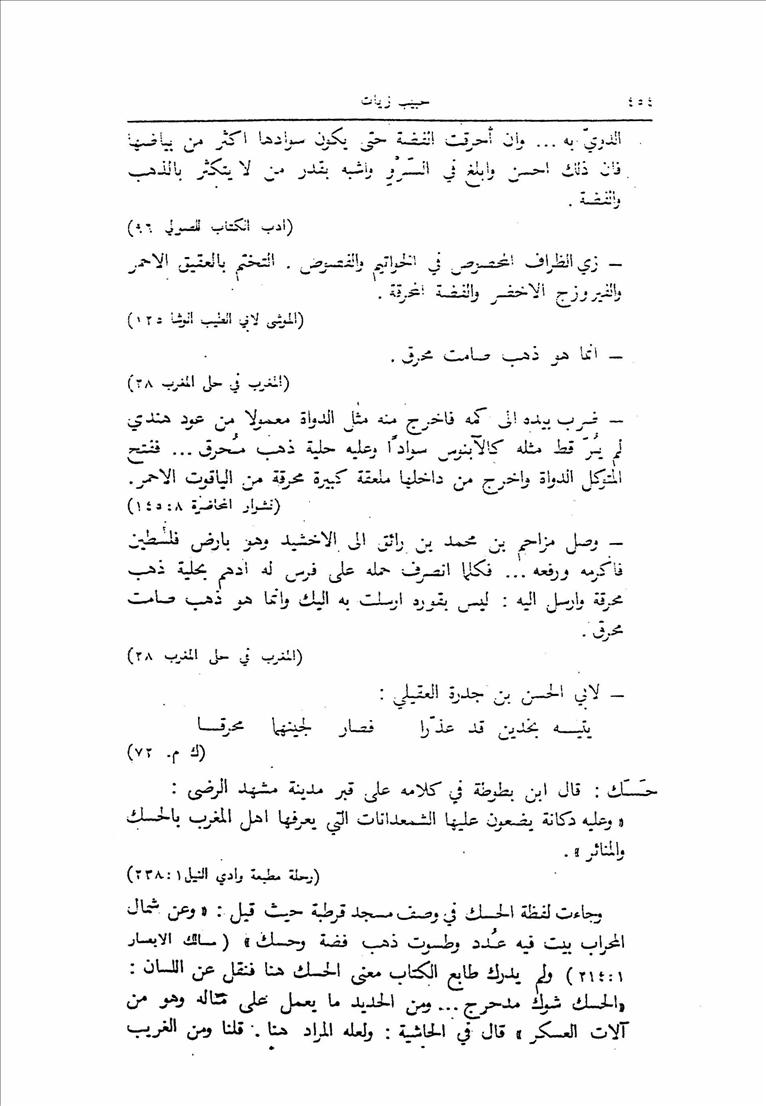 ٤٥٤ حبيب زيات
الدريّ به ... وان أحرقت الفضة حتى يكون سوادها اكثر من بياضها
فان ذلك احسن وابلغ في السَّرْوِ واشبه بقدر من لا يتكثر بالذهب
والفضة .
(ادب الكتاب للصولي ٩٦)
– زي الظراف المخصوص في الخواتيم والفصوص . التختم بالعقيق الاحمر
والفيروزج الاخضر والفضة المحرقة .
(الموشى لابي الطيب الوشا ١٢٥)
– انما هو ذهب صامت محرق .
(المغرب في حلى المغرب ٢٨)
– ضرب بيده الى كمه فاخرج منه مثل الدواة معمولا من عود هندي
لم يُرَ قط مثله كالآبنوس سوادًا وعليه حلية ذهب مُحرق ... ففتح
المتوكل الدواة واخرج من داخلها ملعقة كبيرة محرقة من الياقوت الاحمر.
(نشوار المحاضرة ٨ : ١٤٥)
– وصل مزاحم بن محمد بن رائق الى الاخشيد وهو بارض فلسطين
فاكرمه ورفعه ... فكلما انصرف حمله على فرس له ادهم بحلية ذهب
محرقة وارسل اليه : ليس بقوره ارسلت به اليك وانما هو ذهب صامت
محرق .
(المغرب في حلى المغرب ٢٨)
– لابي الحسن بن جدرة العقيلي :
يتيـــه بخدين قد عذّرا فصار لجينهما محرقـــا
(ك م. ٧٢)
حَسَك : قال ابن بطوطة في كلامه على قبر مدينة مشهد الرضى :
« وعليه دكانة يضعون عليها الشمعدانات التي يعرفها اهل المغرب بالحسك
والمنائر » .
(رحلة مطبعة وادي النيل ١ : ٢٣٨)
وجاءت لفظة الحسك في وصف مسجد قرطبة حيث قيل : « وعن شمال
المحراب بيت فيه عُدد وطسوت ذهب فضة وحسك » (مسالك الابصار
١ : ٢١٤) ولم يدرك طابع الكتاب معنى الحسك هنا فنقل عن اللسان :
«الحسك شوك مدحرج ... ومن الحديد ما يعمل على مثاله وهو من
آلات العسكر » قال في الحاشية : ولعله المراد هنا . قلنا ومن الغريب